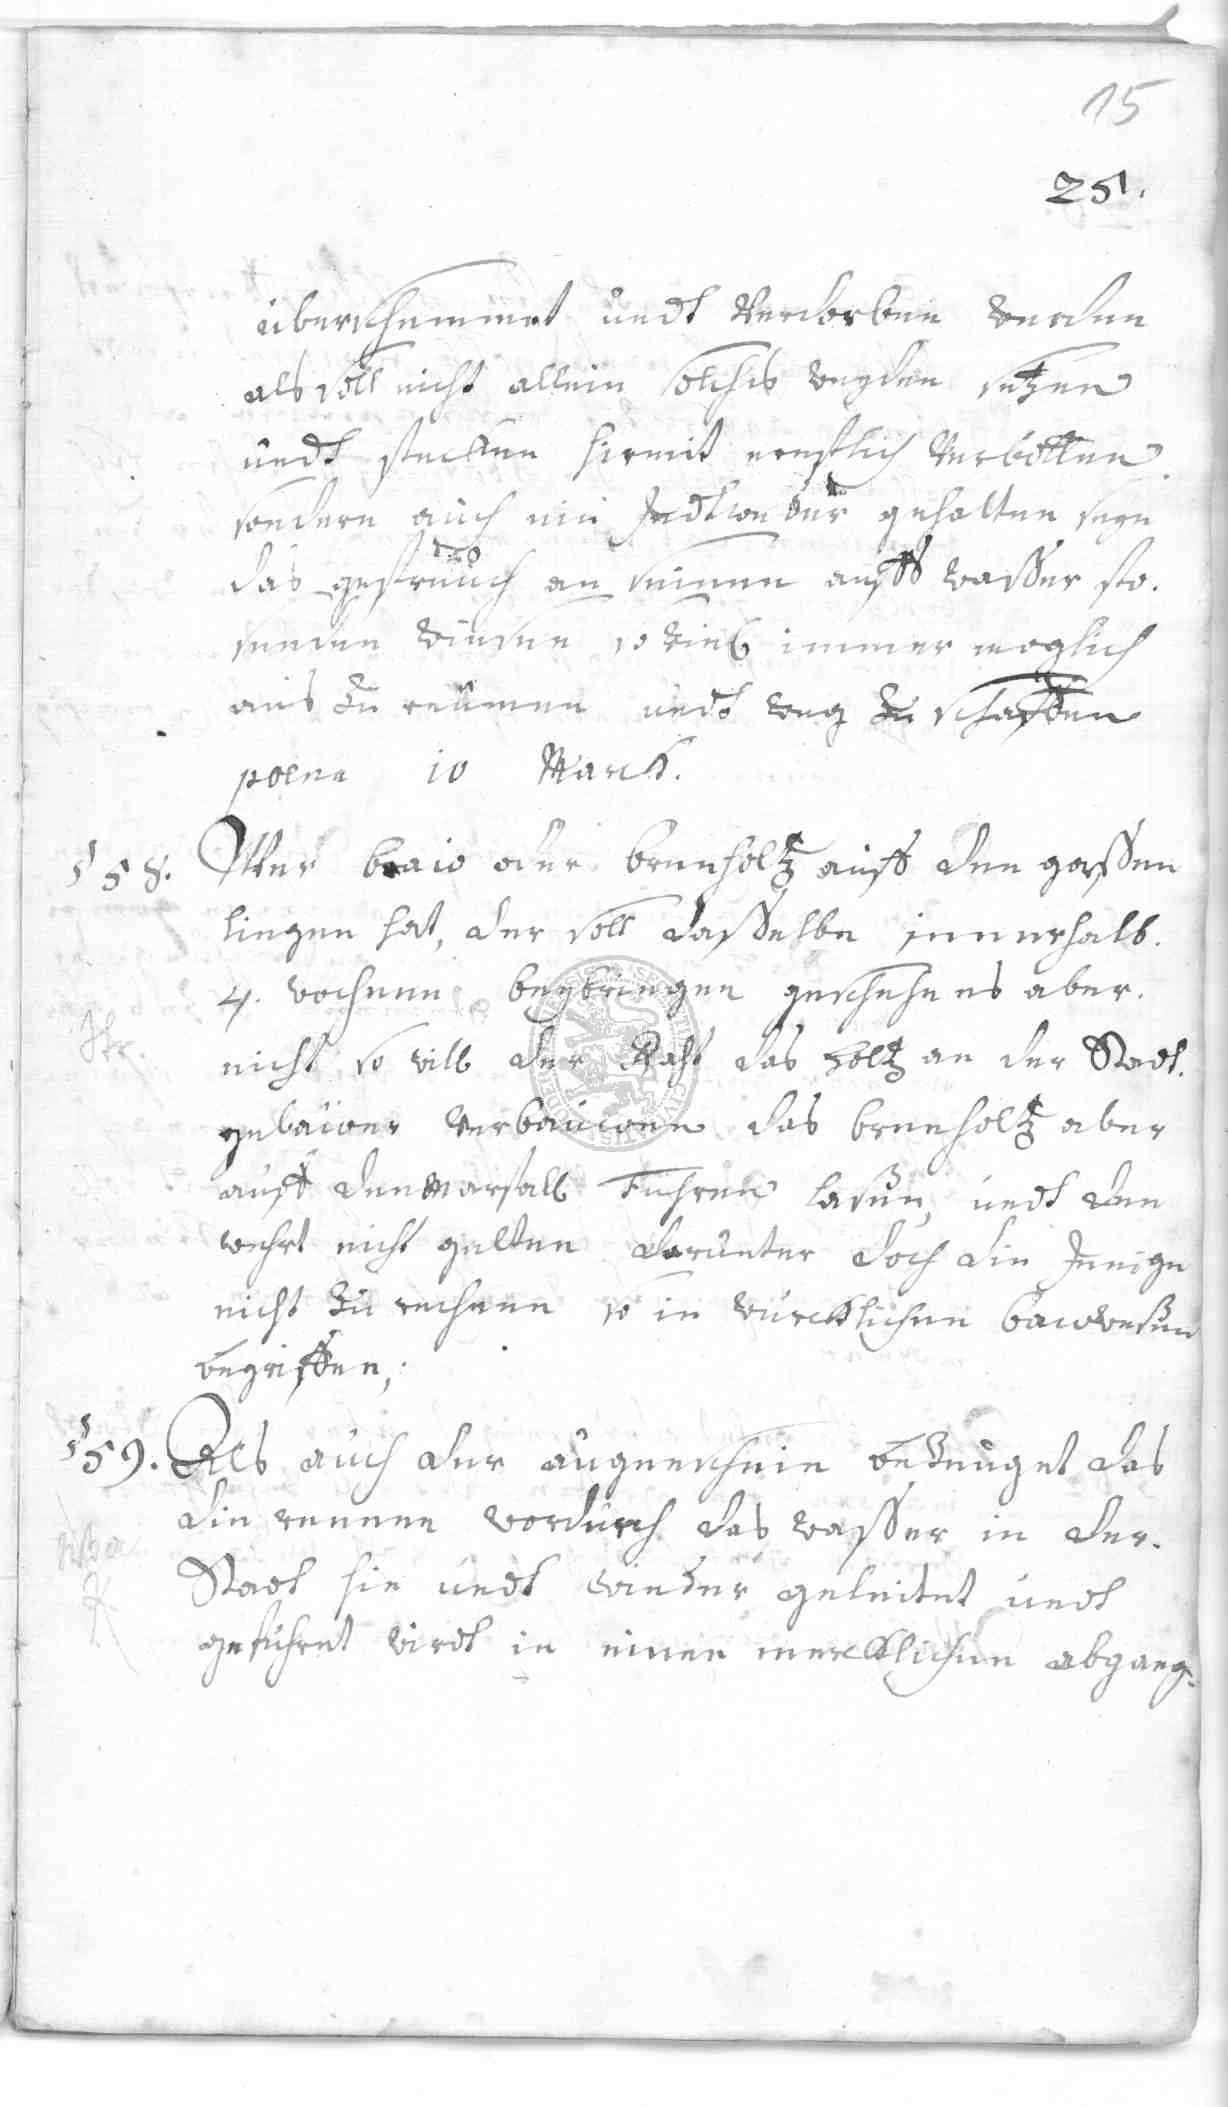 15
25.
überschemmet undt Verdorben werden
als soll nicht allein solches weyden setzen
undt stecken hiermit ernstlich Verbotten
sondern auch ein Jedtweder gehalten seyn
das gestreuch an seinen auffs wasser sto.
senden wiesen so viel immer moglich
aus zu reumen undt weg zu schaffen
poena 10 Marck.
§ 58. Wer baw oder brenholtz auff den gassen
liegen hat, der soll dasselbe innerhalb.
4. wochenn beybringen geschehe es aber.
nicht so will der Raht das holtz an der Stadt.
gebäwer verbauwen das brenholtz aber
auff den Marstall Fuhren lasen, undt den
wehrt nicht gelten darunter doch die Jenige
nicht zu rechnen so in wurcklichen bawwesen
begriffen;
§ 59. Als auch der augenschein bezeuget das
die rennen wordurch das wasser in der.
Stadt hin undt wieder geleitet undt
gefuhret wirdt in einen mercklichen abgang.